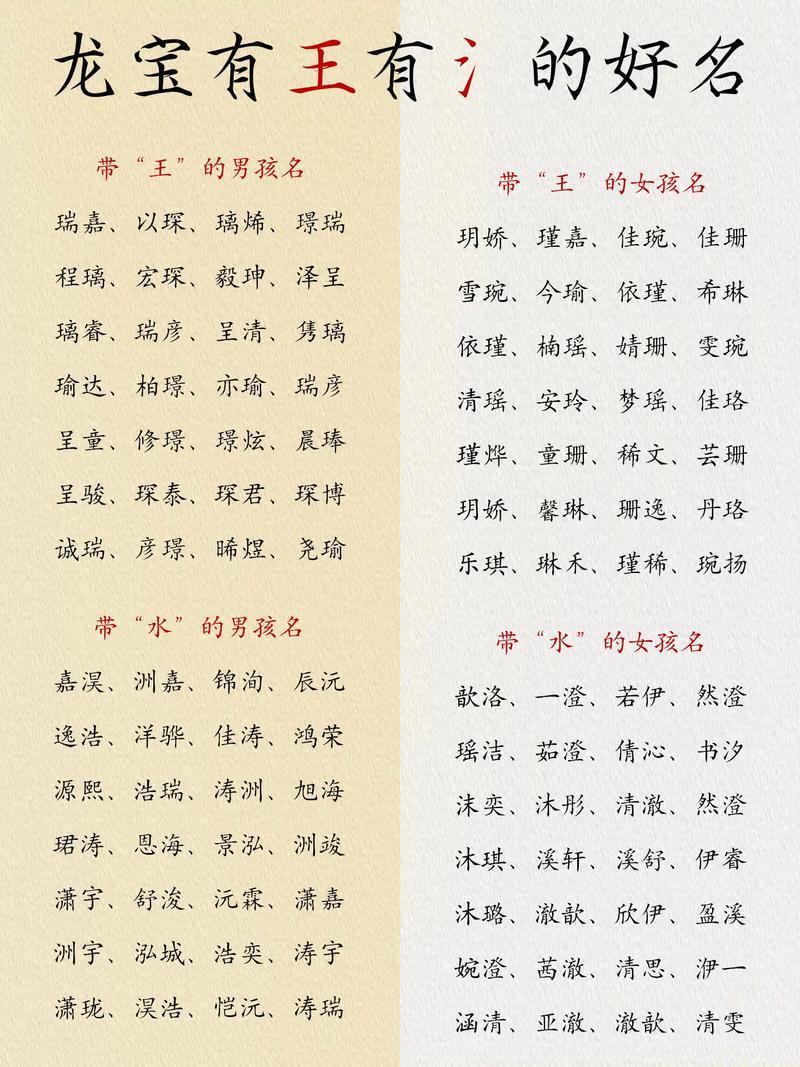 龙宝有王有氵的好名
带“王”的男孩名
瑞嘉、以琛、璃烯、璟瑞
程璃、宏琛、毅珅、泽呈
璃睿、瑞彦、呈清、隽璃
瑜达、柏璟、亦瑜、瑞彦
呈童、修璟、璟炫、晨琫
呈骏、琛泰、琛君、琛博
诚瑞、彦璟、晞煜、尧瑜
带“水”的男孩名
嘉淏、洲嘉、锦洵、辰沅
逸浩、洋骅、佳涛、鸿荣
源熙、浩瑞、涛洲、旭海
珺涛、恩海、景泓、洲竣
潇宇、舒浚、沅霖、潇嘉
洲宇、泓城、浩奕、涛宇
潇珑、淏浩、恺沅、涛瑞
带“王”的女孩名
玥娇、瑾嘉、佳琬、佳珊
雪琬、今瑜、依瑾、希琳
依瑾、楠瑶、婧珊、雯琬
清瑶、安玲、梦瑶、佳珞
瑾烨、童珊、稀文、芸珊
玥娇、馨琳、珊逸、丹珞
乐琪、琳禾、瑾稀、琬扬
带“水”的女孩名
歆洛、一澄、若伊、然澄
瑶洁、茹澄、倩沁、书汐
沫奕、沐彤、清澈、然澄
沐琪、溪轩、溪舒、伊睿
沐璐、澈歆、欣伊、盈溪
婉澄、茜澈、清思、洢一
涵清、亚澈、澈歆、清雯